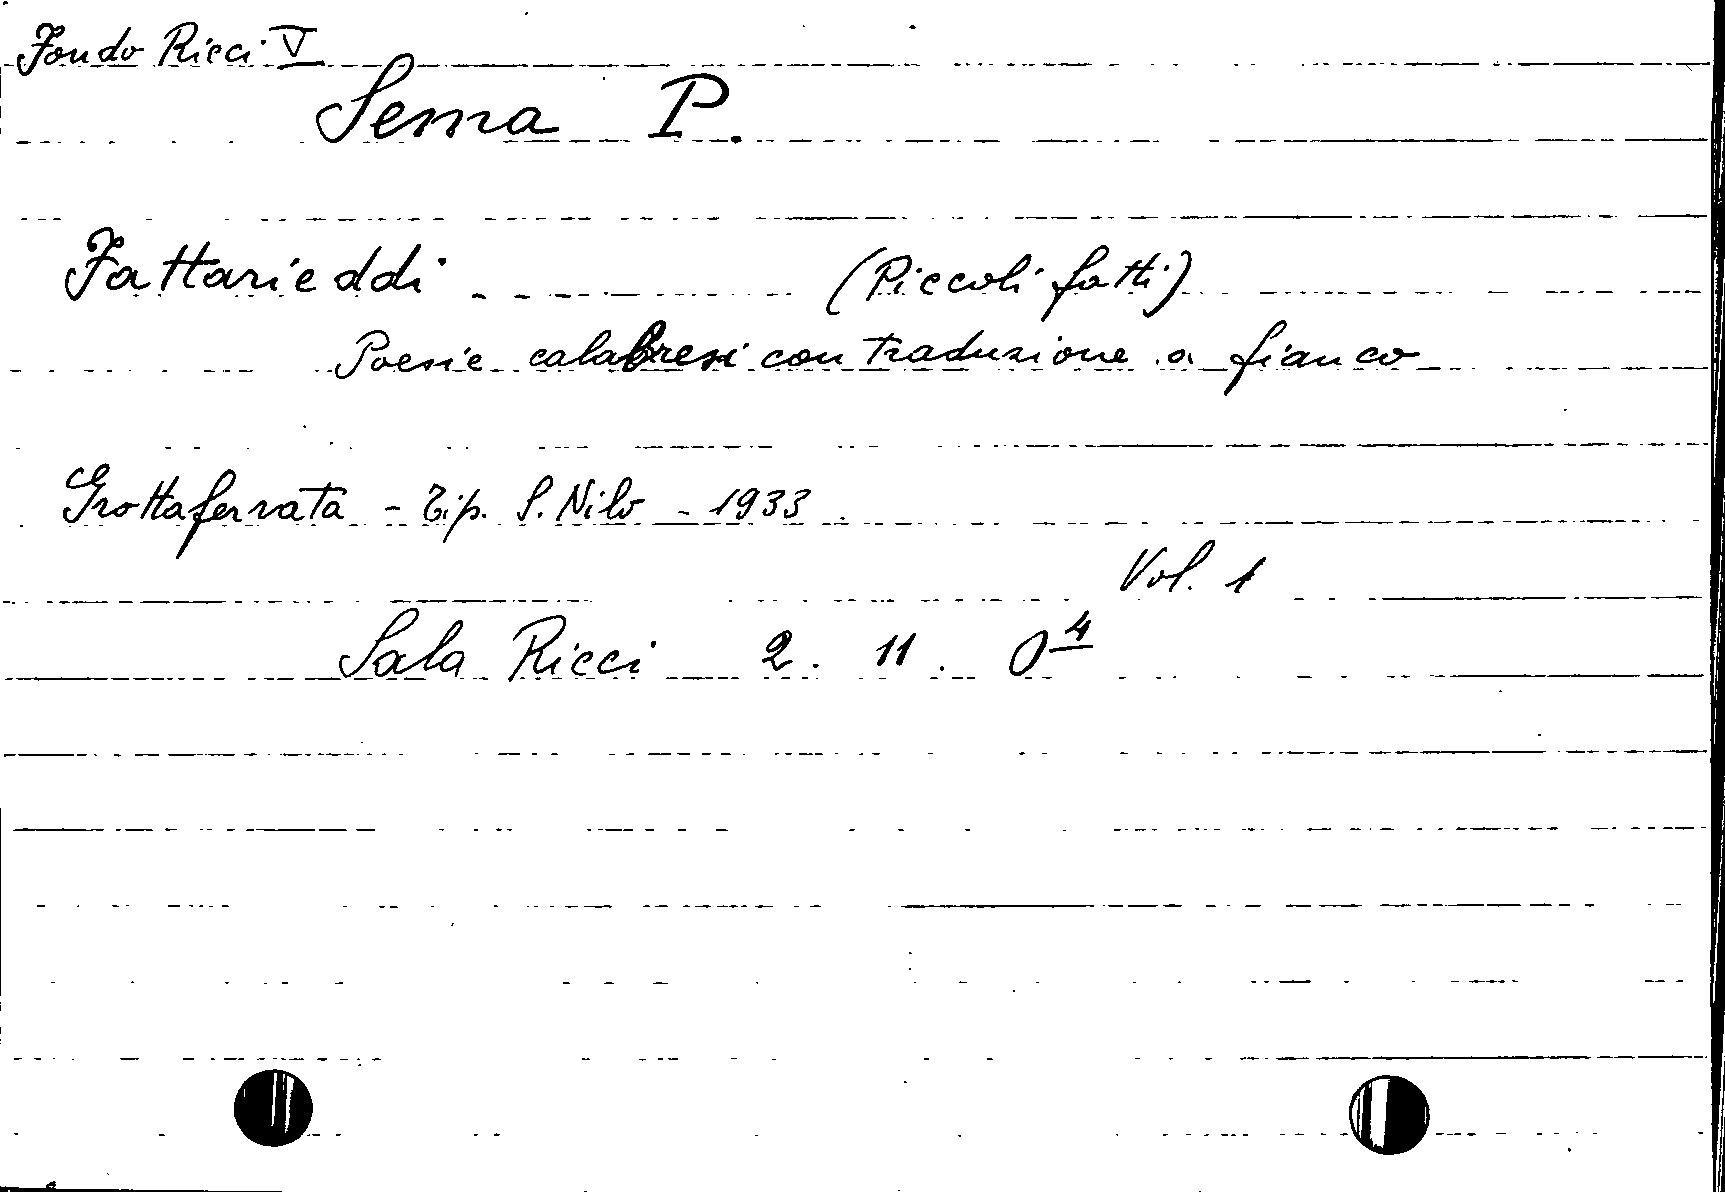 Fondo Ricci V
Serra P.
Fattarieddi (Piccoli fatti)
Poesie calabresi con traduzione a fianco
Grottaferrata - Tip. S. Nilo - 1933
Vol. 1
Sala Ricci 2. 11. O⁴